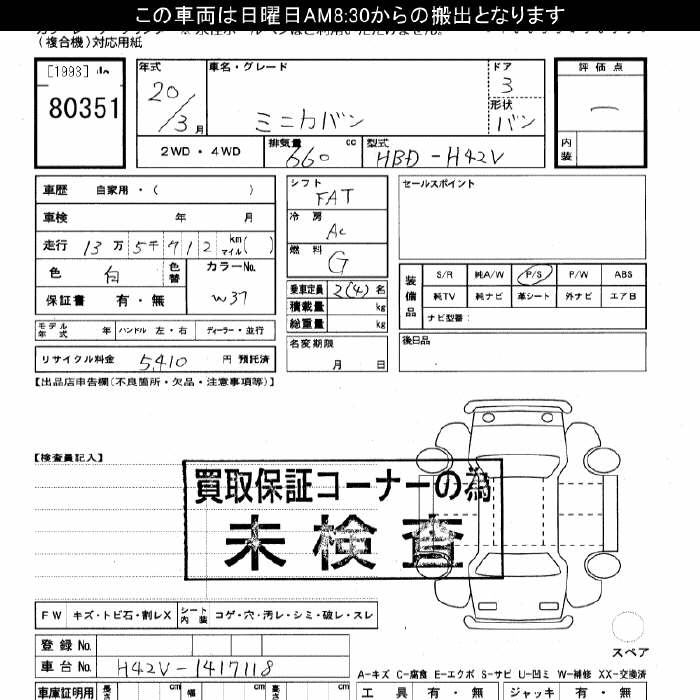 この車両は日曜日AM8:30からの搬出となります
(複合機)対応用紙
[1993]
80351
年式
20/3月
車名・グレード
ミニカバン
ドア
3
形状
バン
評価点
ー
内装
2WD・4WD
排気量
660 cc
型式
HBD-H42V
車歴 自家用・( )
車検 年 月
走行 13万5千912 km マイル( )
色 白 色替
カラーNo. W37
保証書 有・無
モデル年式 年 ハンドル 左・右 ディーラー・並行
リサイクル料金 5,410 円 預託済
シフト
FAT
冷房
AC
燃料
G
乗車定員 2(4)名
積載量 kg
総重量 kg
名変期限
月 日
セールスポイント
装備品
S/R 純A/W P/S P/W ABS
純TV 純ナビ 革シート 外ナビ エアB
ナビ型番:
後日品
【出品店申告欄(不良箇所・欠品・注意事項等)】
【検査員記入】
買取保証コーナーの為
未検査
FW キズ・トビ石・割レX シート内装 コゲ・穴・汚レ・シミ・破レ・スレ
スペア
登録No.
車台No. H42V-1417118
A-キズ C-腐食 E-エクボ S-サビ U-凹ミ W-補修 XX-交換済
車庫証明用 長さ cm 幅 cm 高さ cm
工具 有・無 ジャッキ 有・無